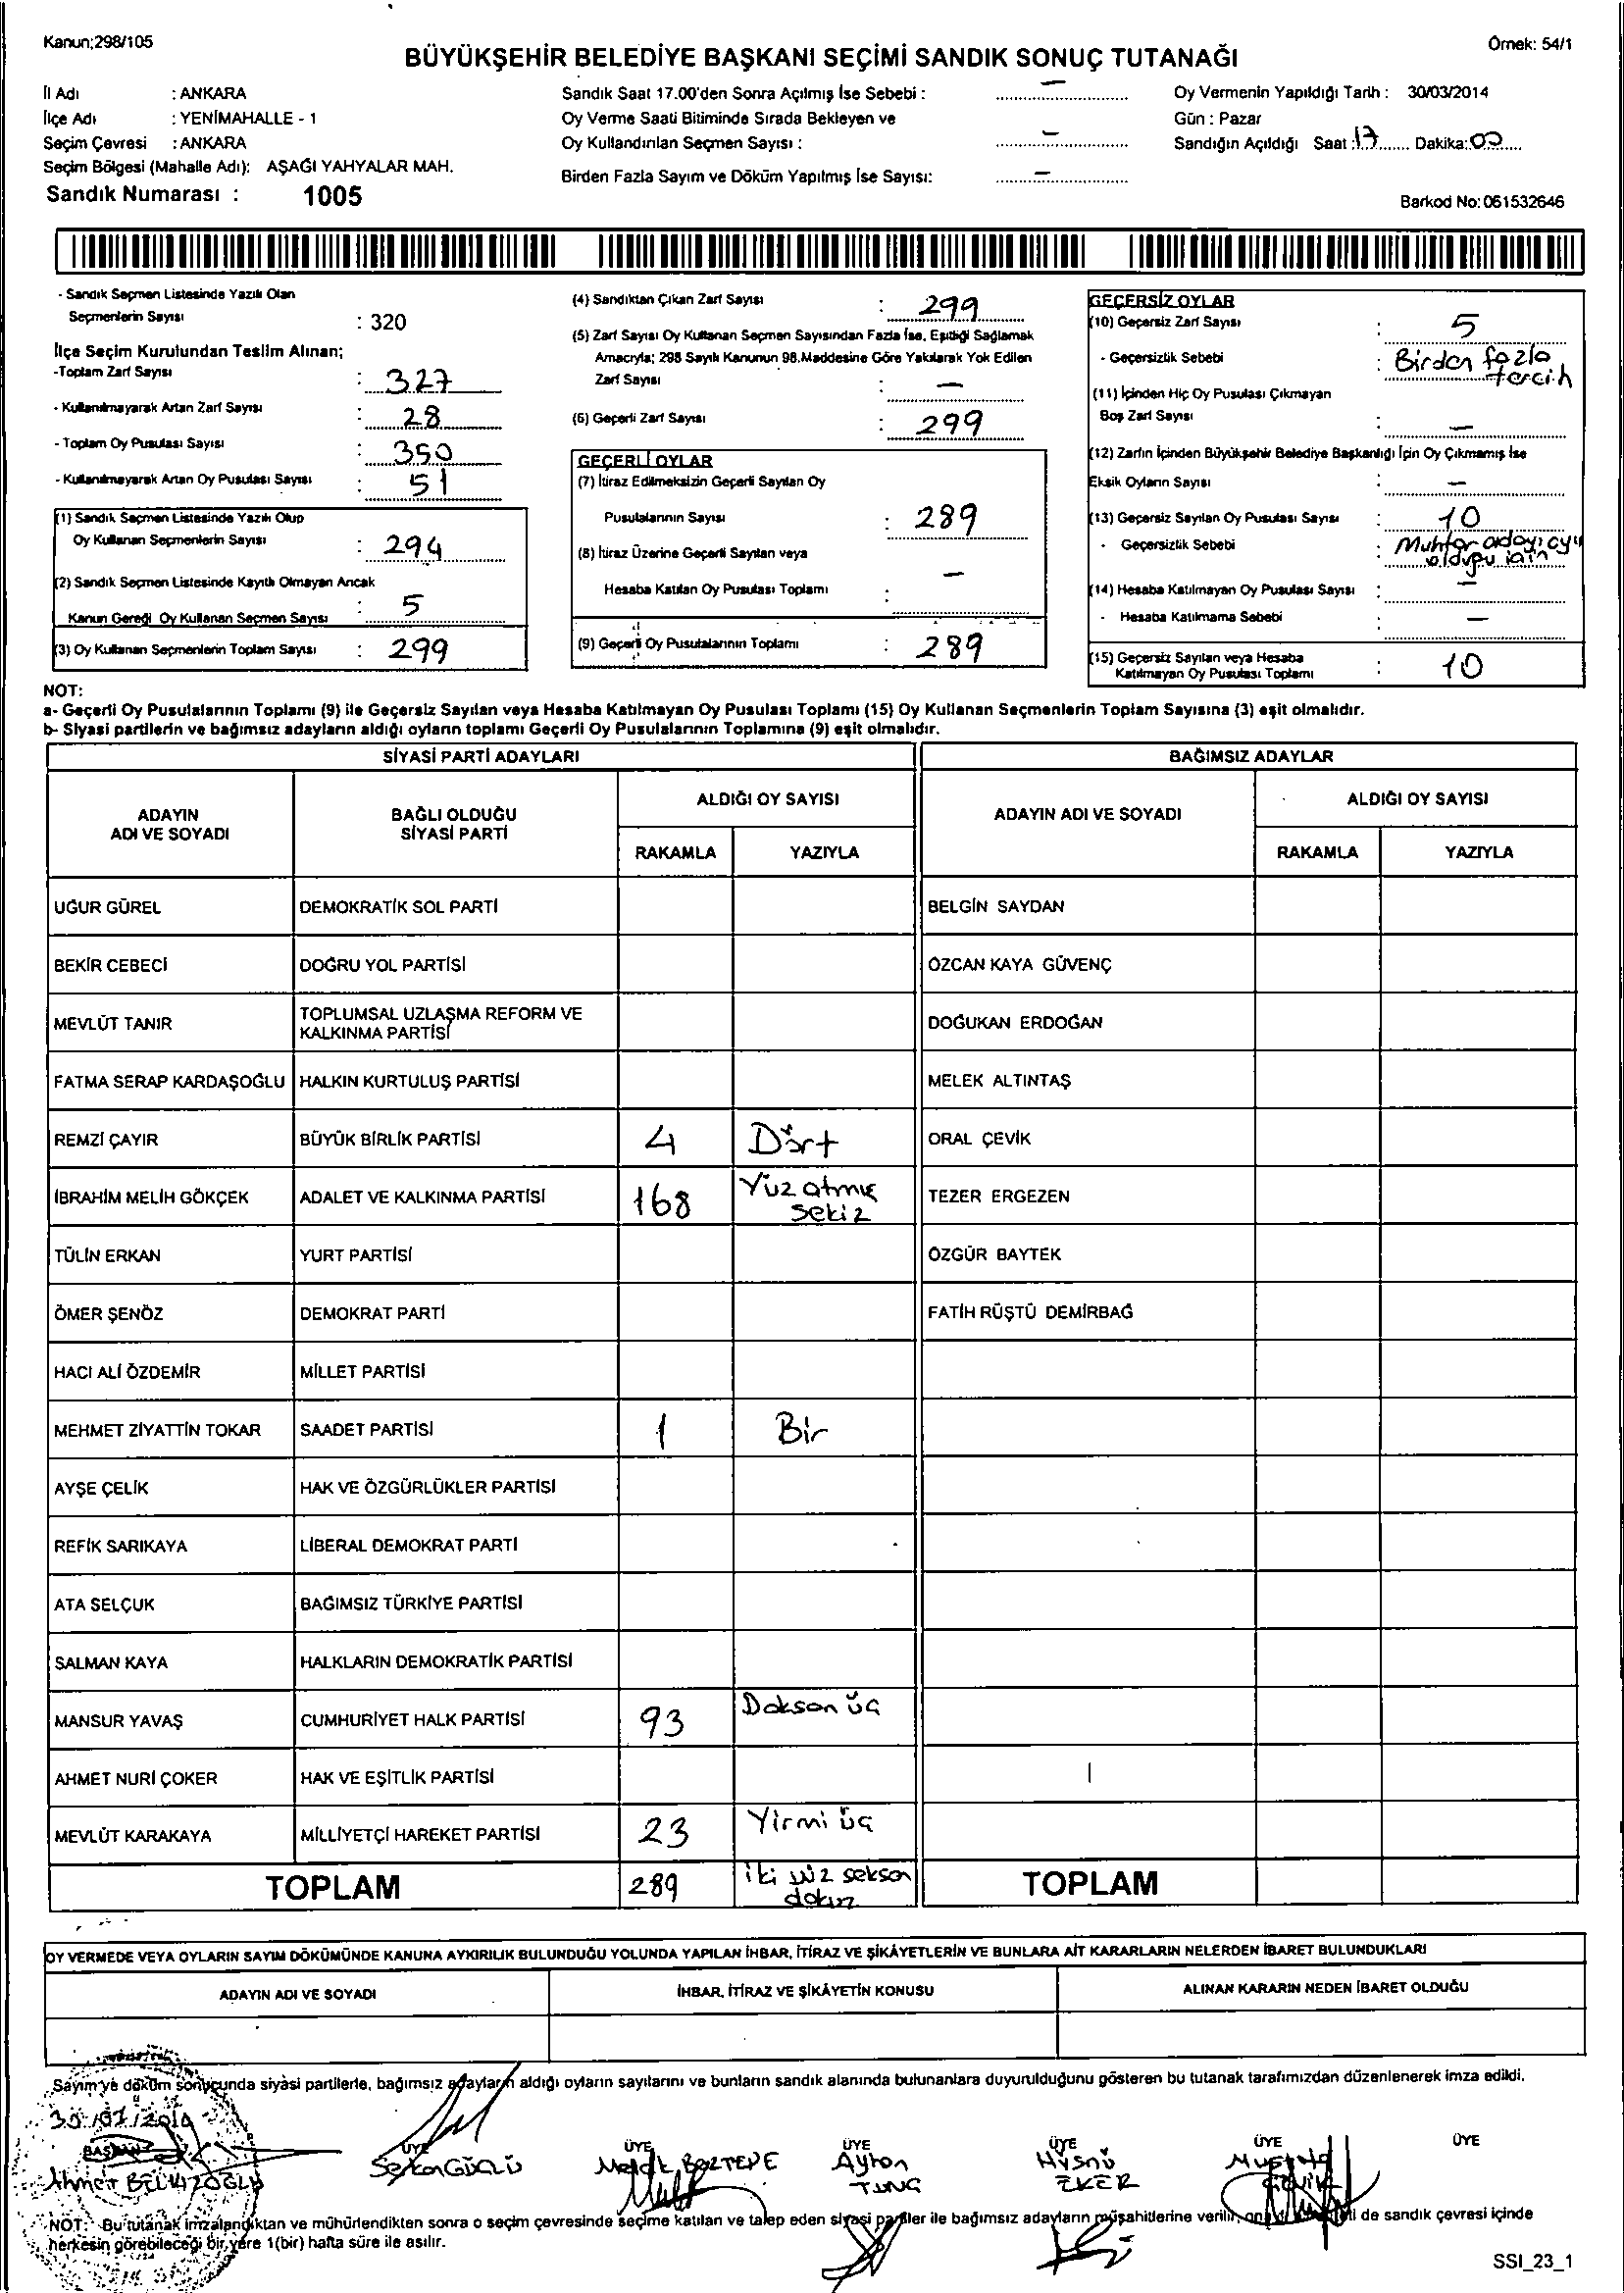 Kanun;298/105
Örnek: 54/1
BÜYÜKŞEHİR BELEDİYE BAŞKANI SEÇİMİ SANDIK SONUÇ TUTANAĞI
İl Adı : ANKARA
İlçe Adı : YENİMAHALLE - 1
Seçim Çevresi : ANKARA
Seçim Bölgesi (Mahalle Adı): AŞAĞI YAHYALAR MAH.
Sandık Numarası : 1005
Sandık Saat 17.00'den Sonra Açılmış İse Sebebi : –
Oy Verme Saati Bitiminde Sırada Bekleyen ve
Oy Kullandırılan Seçmen Sayısı : –
Birden Fazla Sayım ve Döküm Yapılmış İse Sayısı: –
Oy Vermenin Yapıldığı Tarih : 30/03/2014
Gün : Pazar
Sandığın Açıldığı Saat : 17 Dakika: 00
Barkod No: 061532646
- Sandık Seçmen Listesinde Yazılı Olan
Seçmenlerin Sayısı : 320
İlçe Seçim Kurulundan Teslim Alınan;
-Toplam Zarf Sayısı : 327
- Kullanılmayarak Artan Zarf Sayısı : 28
- Toplam Oy Pusulası Sayısı : 350
- Kullanılmayarak Artan Oy Pusulası Sayısı : 51
(1) Sandık Seçmen Listesinde Yazılı Olup
Oy Kullanan Seçmenlerin Sayısı : 294
(2) Sandık Seçmen Listesinde Kayıtlı Olmayan Ancak
Kanun Gereği Oy Kullanan Seçmen Sayısı : 5
(3) Oy Kullanan Seçmenlerin Toplam Sayısı : 299
(4) Sandıktan Çıkan Zarf Sayısı : 299
(5) Zarf Sayısı Oy Kullanan Seçmen Sayısından Fazla İse, Eşitliği Sağlamak
Amacıyla; 298 Sayılı Kanunun 98.Maddesine Göre Yakılarak Yok Edilen
Zarf Sayısı : –
(6) Geçerli Zarf Sayısı : 299
GEÇERLİ OYLAR
(7) İtiraz Edilmeksizin Geçerli Sayılan Oy
Pusulalarının Sayısı : 289
(8) İtiraz Üzerine Geçerli Sayılan veya
Hesaba Katılan Oy Pusulası Toplamı : –
(9) Geçerli Oy Pusulalarının Toplamı : 289
GEÇERSİZ OYLAR
(10) Geçersiz Zarf Sayısı : 5
- Geçersizlik Sebebi : Birden fazla
tercih
(11) İçinden Hiç Oy Pusulası Çıkmayan
Boş Zarf Sayısı : –
(12) Zarfın İçinden Büyükşehir Belediye Başkanlığı İçin Oy Çıkmamış İse
Eksik Oyların Sayısı : –
(13) Geçersiz Sayılan Oy Pusulası Sayısı : 10
- Geçersizlik Sebebi : Muhtar adayı oyu
olduğu için
(14) Hesaba Katılmayan Oy Pusulası Sayısı : –
- Hesaba Katılmama Sebebi : –
(15) Geçersiz Sayılan veya Hesaba
Katılmayan Oy Pusulası Toplamı : 10
NOT:
a- Geçerli Oy Pusulalarının Toplamı (9) ile Geçersiz Sayılan veya Hesaba Katılmayan Oy Pusulası Toplamı (15) Oy Kullanan Seçmenlerin Toplam Sayısına (3) eşit olmalıdır.
b- Siyasi partilerin ve bağımsız adayların aldığı oyların toplamı Geçerli Oy Pusulalarının Toplamına (9) eşit olmalıdır.
SİYASİ PARTİ ADAYLARI BAĞIMSIZ ADAYLAR
ADAYIN ADI VE SOYADI BAĞLI OLDUĞU SİYASİ PARTİ ALDIĞI OY SAYISI ADAYIN ADI VE SOYADI ALDIĞI OY SAYISI
RAKAMLA YAZIYLA RAKAMLA YAZIYLA
UĞUR GÜREL DEMOKRATİK SOL PARTİ BELGİN SAYDAN
BEKİR CEBECİ DOĞRU YOL PARTİSİ ÖZCAN KAYA GÜVENÇ
MEVLÜT TANIR TOPLUMSAL UZLAŞMA REFORM VE KALKINMA PARTİSİ DOĞUKAN ERDOĞAN
FATMA SERAP KARDAŞOĞLU HALKIN KURTULUŞ PARTİSİ MELEK ALTINTAŞ
REMZİ ÇAYIR BÜYÜK BİRLİK PARTİSİ 4 Dört ORAL ÇEVİK
İBRAHİM MELİH GÖKÇEK ADALET VE KALKINMA PARTİSİ 168 Yüz atmış sekiz TEZER ERGEZEN
TÜLİN ERKAN YURT PARTİSİ ÖZGÜR BAYTEK
ÖMER ŞENÖZ DEMOKRAT PARTİ FATİH RÜŞTÜ DEMİRBAĞ
HACI ALİ ÖZDEMİR MİLLET PARTİSİ
MEHMET ZİYATTİN TOKAR SAADET PARTİSİ 1 Bir
AYŞE ÇELİK HAK VE ÖZGÜRLÜKLER PARTİSİ
REFİK SARIKAYA LİBERAL DEMOKRAT PARTİ
ATA SELÇUK BAĞIMSIZ TÜRKİYE PARTİSİ
SALMAN KAYA HALKLARIN DEMOKRATİK PARTİSİ
MANSUR YAVAŞ CUMHURİYET HALK PARTİSİ 93 Doksan üç
AHMET NURİ ÇOKER HAK VE EŞİTLİK PARTİSİ
MEVLÜT KARAKAYA MİLLİYETÇİ HAREKET PARTİSİ 23 Yirmi üç
TOPLAM 289 iki yüz seksen dokuz TOPLAM
OY VERMEDE VEYA OYLARIN SAYIM DÖKÜMÜNDE KANUNA AYKIRILIK BULUNDUĞU YOLUNDA YAPILAN İHBAR, İTİRAZ VE ŞİKÂYETLERİN VE BUNLARA AİT KARARLARIN NELERDEN İBARET BULUNDUKLARI
ADAYIN ADI VE SOYADI İHBAR, İTİRAZ VE ŞİKÂYETİN KONUSU ALINAN KARARIN NEDEN İBARET OLDUĞU
Sayım ve döküm sonucunda siyasi partilerle, bağımsız adayların aldığı oyların sayılarını ve bunların sandık alanında bulunanlara duyurulduğunu gösteren bu tutanak tarafımızdan düzenlenerek imza edildi.
BAŞKAN ÜYE ÜYE ÜYE ÜYE ÜYE ÜYE
Ahmet Serkan GÜÇLÜ BOZTEPE Ayhan TUNG Hüsnü EKER Mustafa
NOT: Bu tutanak imzalandıktan ve mühürlendikten sonra o seçim çevresinde seçime katılan ve talep eden siyasi partiler ile bağımsız adayların müşahitlerine verilir, de sandık çevresi içinde
herkesin görebileceği bir yere 1(bir) hafta süre ile asılır.
SSI_23_1